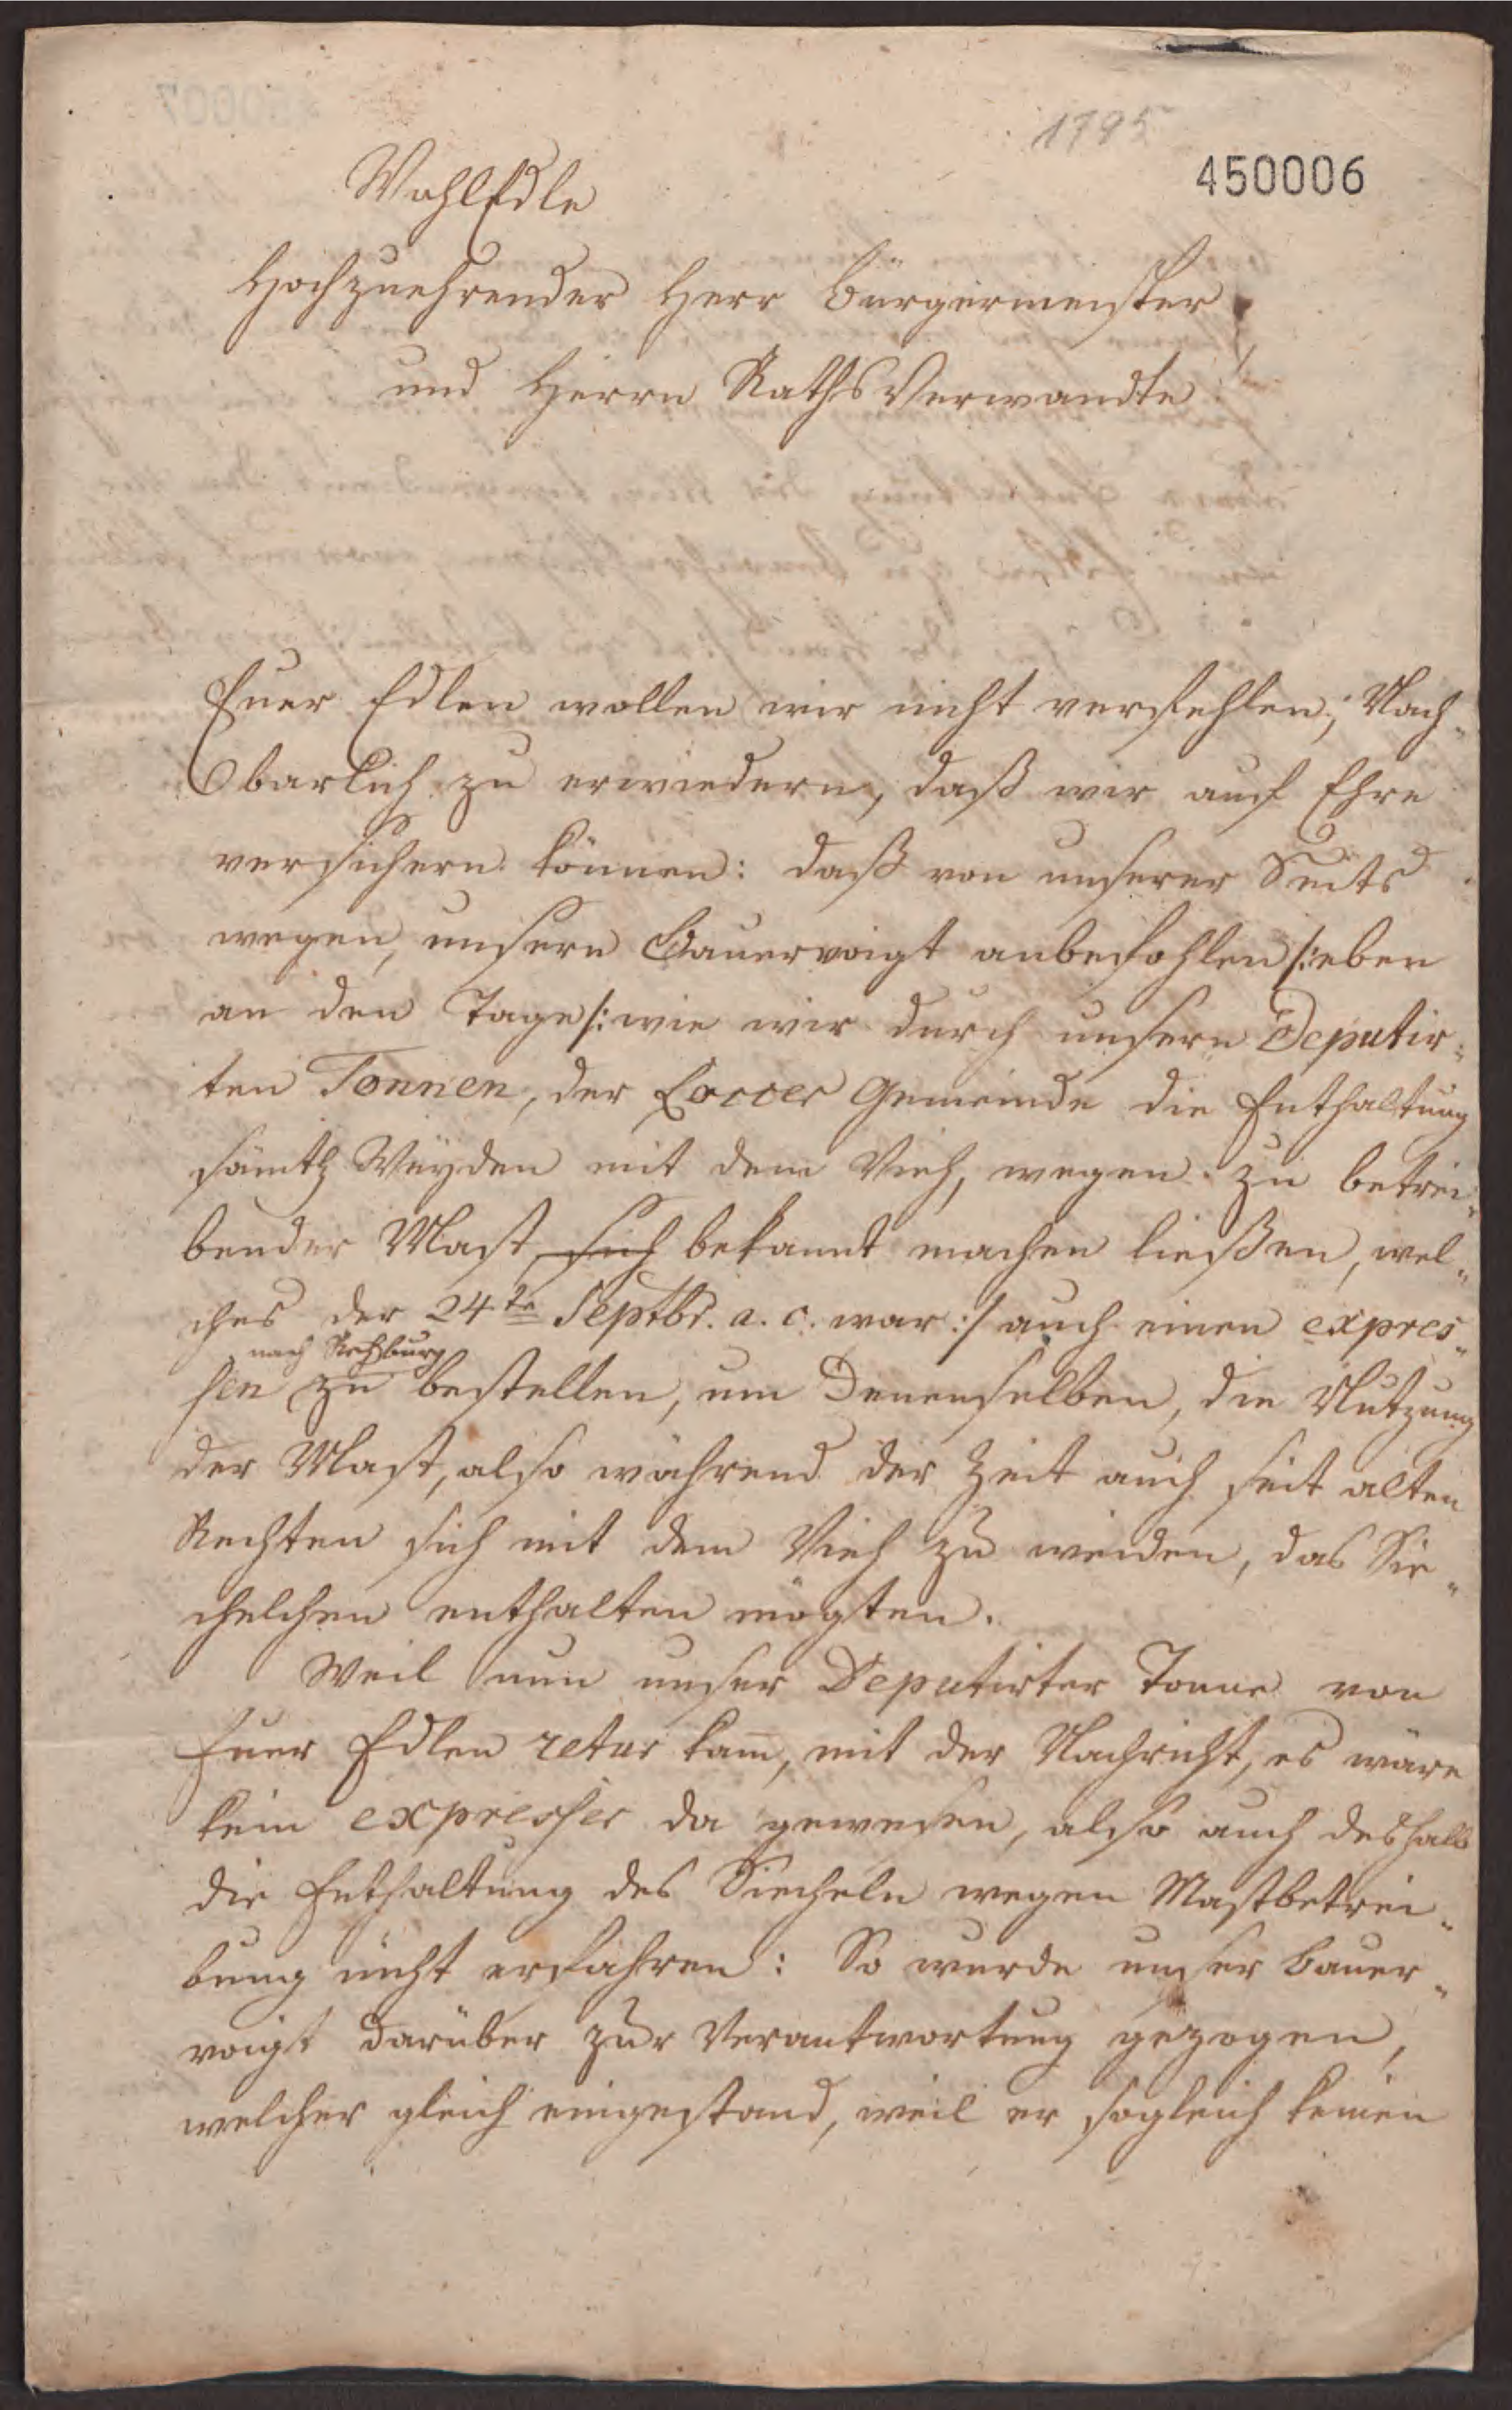 1795
450006
WohlEdle
Hochzuehrender Herr Bürgermeister
und Herrn RathsVerwandte!
Euer Edlen wollen wir nicht verfehlen, Nach„
barlich zu erwiedern, daß wir auf Ehre
versichern können: daß von unserer Seits
wegen, unsern Bauervoigt anbefohlen /:eben
an den Tage/: wie wir durch unsern Deputir„
ten Tonnen, der Loccer Gemeinde die Enthaltung
sämtl Weyden mit dem Vieh, wegen zu betrei„
bender Mast, sich bekannt machen ließen, wel„
ches der 24te Septbr. a. c. war :/ auch einen expres„
nach Rehburg
sen zu bestellen, um Denenselben, die Nutzung
der Mast, also während der Zeit auch seit alten
Rechten sich mit dem Vieh zu weiden, das Sie„
chelchen enthalten mögten.
Weil nun unser Deputirter Tonne von
Euer Edlen retur kam, mit der Nachricht, es wäre
kein expresser da gewesen, also auch deshalb
die Enthaltung des Siecheln wegen Mastbetrei„
bung nicht erfahren: So wurde unser Bauer„
voigt darüber zur Verantwortung gezogen,
welcher gleich eingestand, weil er sogleich keinen